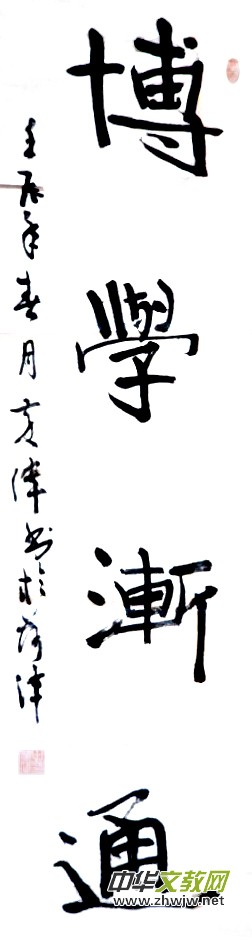 博學漸通
壬辰年春月
书於
中华文教网
www.zhwjw.net